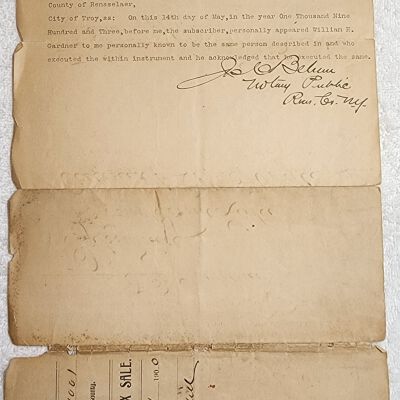 County of Rensselaer,
City of Troy,ss: On this 14th day of May,in the year One Thousand Nine
Hundred and Three,before me,the subscriber,personally appeared William H.
Gardner to me personally known to be the same person described in and who
executed the within instrument and he acknowledged that he executed the same.
Notary Public
Rens. Co. N.Y.
X SALE.
190
County.